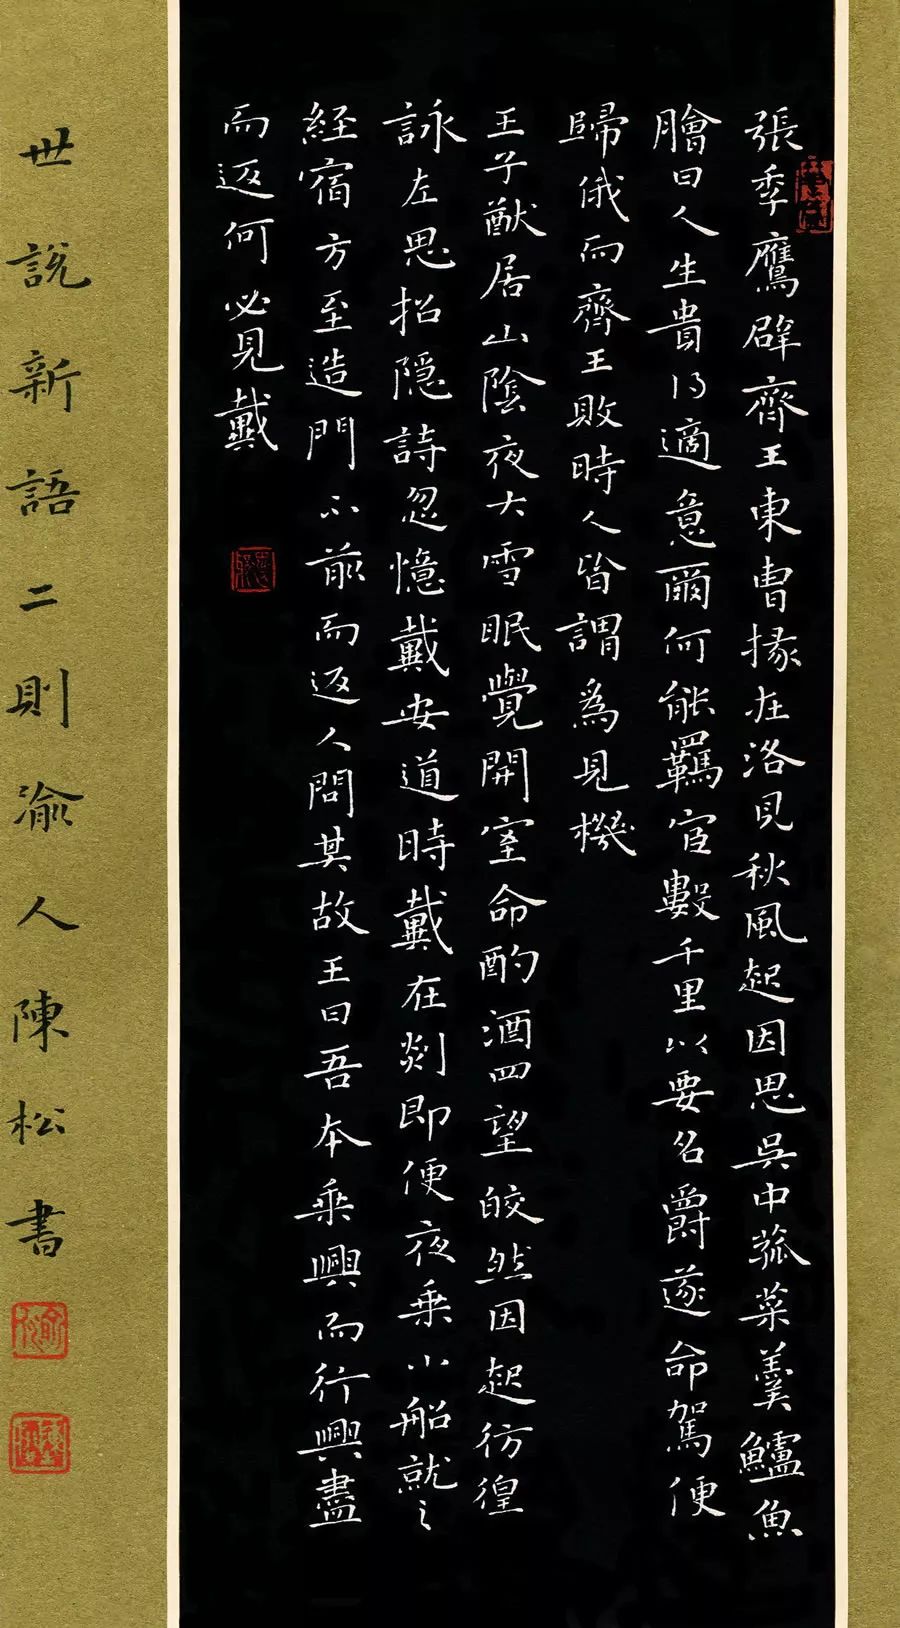 張季鷹辟齊王東曹掾在洛見秋風起因思吳中菰菜羹鱸魚
膾曰人生貴得適意爾何能羈宦數千里以要名爵遂命駕便
歸俄而齊王敗時人皆謂為見機
王子猷居山陰夜大雪眠覺開室命酌酒四望皎然因起彷徨
詠左思招隱詩忽憶戴安道時戴在剡即便夜乘小船就之
經宿方至造門不前而返人問其故王曰吾本乘興而行興盡
而返何必見戴
世說新語二則渝人陳松書